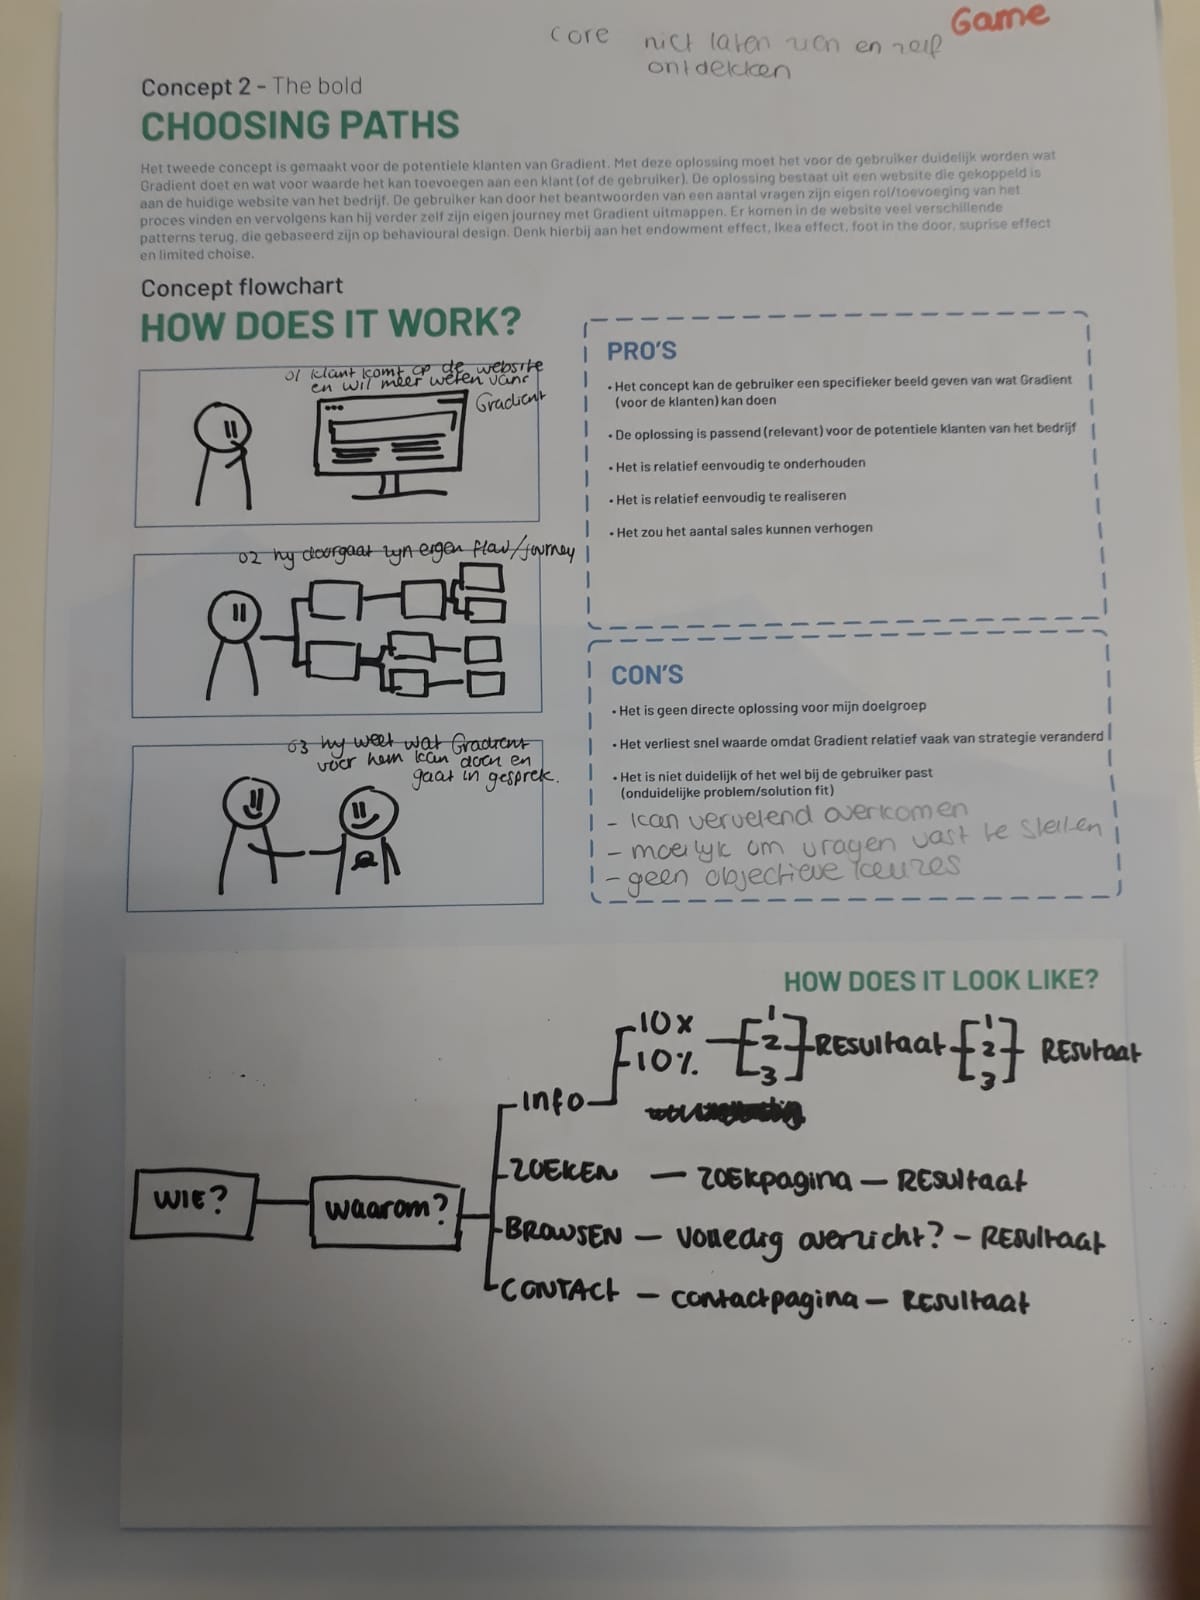 Game
core niet laten zien en zelf
ontdekken
Concept 2 - The bold
CHOOSING PATHS
Het tweede concept is gemaakt voor de potentiele klanten van Gradient. Met deze oplossing moet het voor de gebruiker duidelijk worden wat
Gradient doet en wat voor waarde het kan toevoegen aan een klant (of de gebruiker). De oplossing bestaat uit een website die gekoppeld is
aan de huidige website van het bedrijf. De gebruiker kan door het beantwoorden van een aantal vragen zijn eigen rol/toevoeging van het
proces vinden en vervolgens kan hij verder zelf zijn eigen journey met Gradient uitmappen. Er komen in de website veel verschillende
patterns terug, die gebaseerd zijn op behavioural design. Denk hierbij aan het endowment effect, Ikea effect, foot in the door, suprise effect
en limited choise.
Concept flowchart
HOW DOES IT WORK?
01 klant komt op de website
en wil meer weten van
Gradient
02 hij doorgaat zijn eigen flow/journey
03 hij weet wat Gradient
voor hem kan doen en
gaat in gesprek.
PRO'S
• Het concept kan de gebruiker een specifieker beeld geven van wat Gradient
(voor de klanten) kan doen
• De oplossing is passend (relevant) voor de potentiele klanten van het bedrijf
• Het is relatief eenvoudig te onderhouden
• Het is relatief eenvoudig te realiseren
• Het zou het aantal sales kunnen verhogen
CON'S
• Het is geen directe oplossing voor mijn doelgroep
• Het verliest snel waarde omdat Gradient relatief vaak van strategie veranderd
• Het is niet duidelijk of het wel bij de gebruiker past
(onduidelijke problem/solution fit)
- kan vervelend overkomen
- moeilijk om vragen vast te stellen
- geen objectieve keuzes
HOW DOES IT LOOK LIKE?
WIE?
waarom?
Info
10x
10%
1
2
3
RESULtaat
1
2
3
RESULtaat
ZOEKEN — ZOEKpagina — RESULtaat
BROWSEN — volledig overzicht? - RESULtaat
CONTACt — contactpagina — RESULtaat